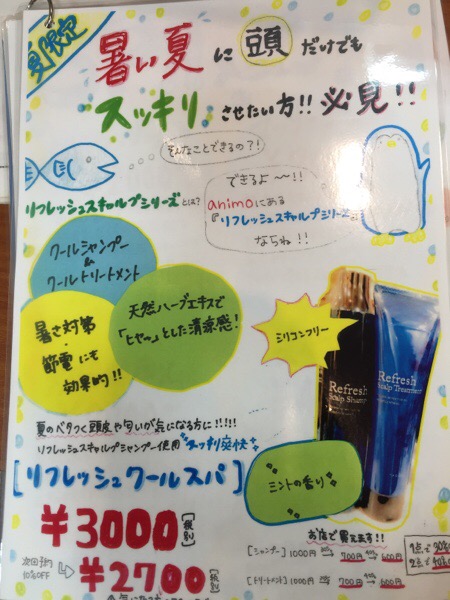 夏限定
暑い夏に頭だけでも
"スッキリ"させたい方!! 必見!!
そんなことできるの?!
できるよ〜!!
animoにある
『リフレッシュスキャルプシリーズ』
ならね!!
リフレッシュスキャルプシリーズとは?
クールシャンプー
&
クールトリートメント
暑さ対策
・節電にも
効果的!!
天然ハーブエキスで
「ヒヤッ」とした清涼感!
シリコンフリー
Refresh
Scalp Shampoo
Refresh
Scalp Treatment
夏のベタつく頭皮や匂いが気になる方に!!!!!
リフレッシュスキャルプシャンプー使用 スッキリ爽快
[リフレッシュクールスパ]
ミントの香り
¥3000 [税別]
次回予約
10%OFF
¥2700 [税別]
お店で買えます!!
[シャンプー] 1000円 → 700円 → 600円
[トリートメント] 1000円 → 700円 → 600円
1点で30%
2点で40%